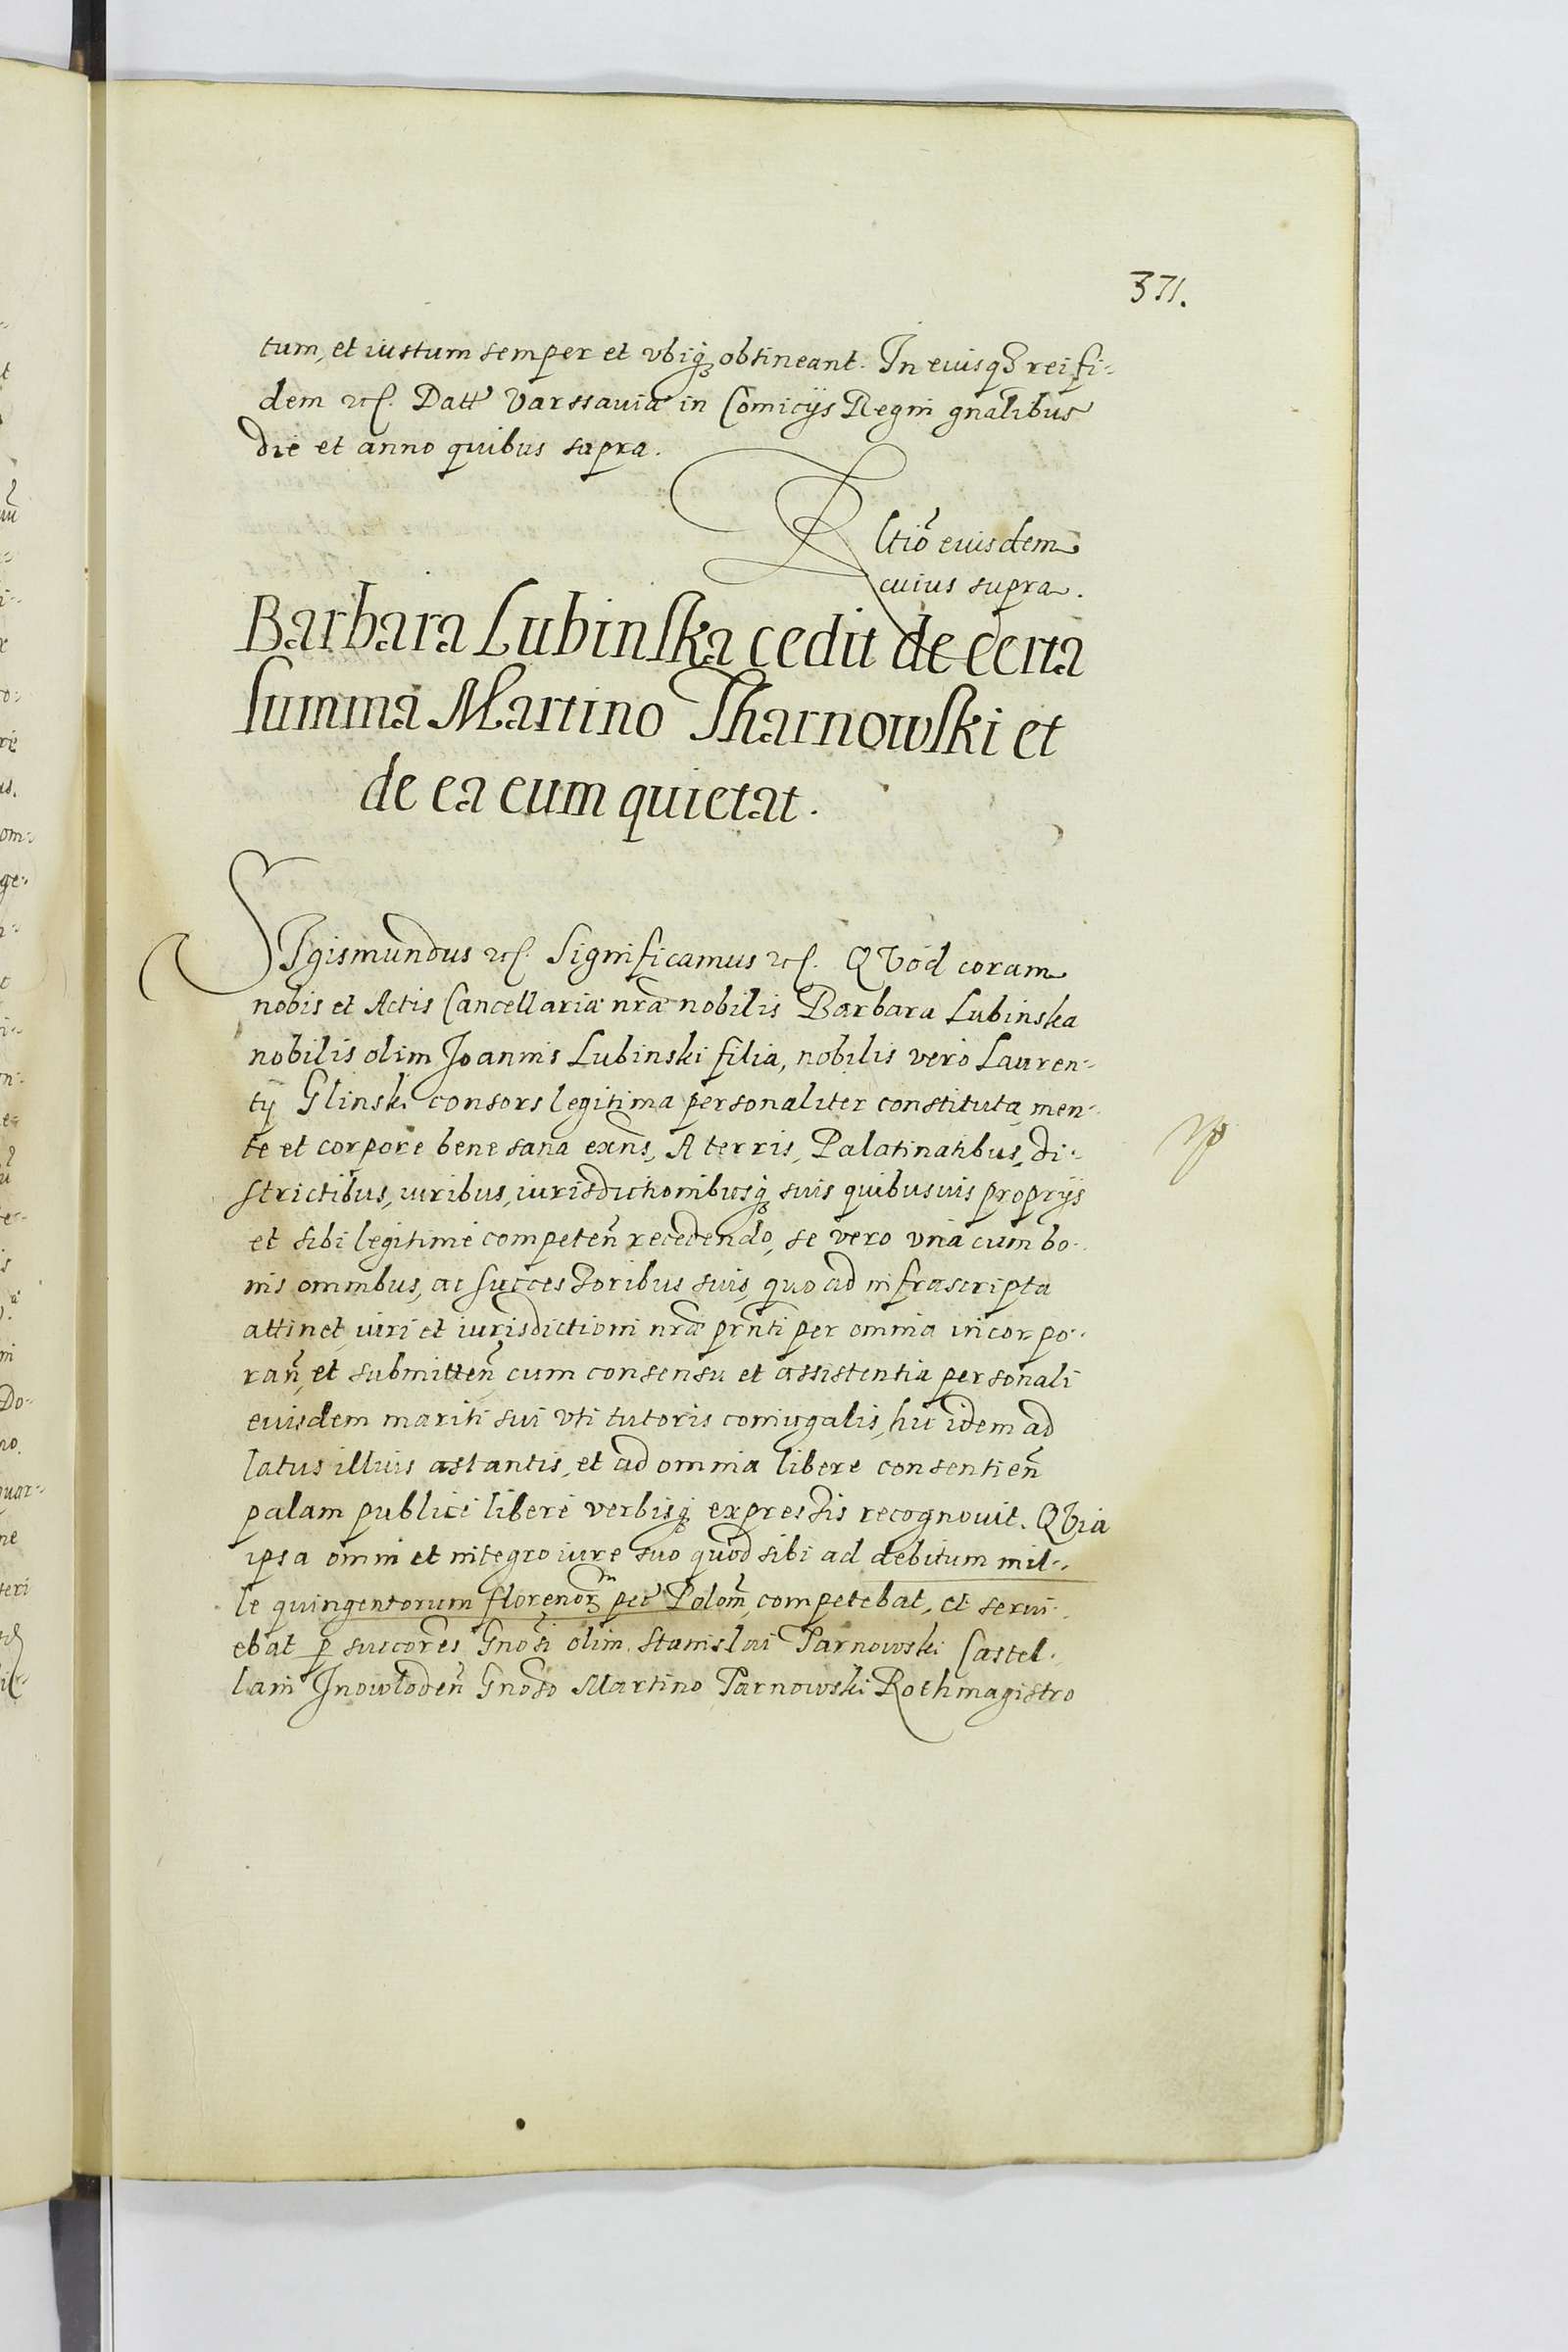 371.
tum, et iustum semper et vbiq₃ obtineant. In euiusq₃ rei fi-
dem etc. Datt Varssauiæ in Comicijs Regni gnãlibus
die et anno quibus supra.
Rltiõ eiusdem
cuius supra.
Barbara Lubinska cedit de certa
summa Martino Tharnowski et
de ea eum quietat.
SIgismundus etc. Significamus etc. QVod coram
nobis et Actis Cancellariæ nræ nobilis Barbara Lubinska
nobilis olim Joannis Lubinski filia, nobilis vero Lauren-
tij Glinski consors legitima personaliter constituta, men-
te et corpore bene sana exñs, A terris, Palatinatibus, di-
strictibus, iuribus, iurisdictionibusq₃ suis quibusuis proprijs
et sibi legitimè competeñ recedendo, se vero vnà cum bo-
nis omnibus, ac successoribus suis, quo ad infrascripta
attinet, iuri et iurisdictioni nræ prñti per omnia incorpo-
rañ, et submitteñ, cum consensu et assistentia personali
eiusdem mariti sui vti tutoris coniugalis, hic idem ad
latus illius astantis, et ad omnia libere consentieñ
palam publicè liberè verbisq₃ expressis recognouit. QVia
ipsa omni et integro iure suo quod sibi ad debitum mil-
le quingentorum florenor₃ pec Poloñ, competebat, et serui-
ebat p succores Gnosi olim Stanislai Tarnowski Castel-
lani Inowlodeñ Gnoso Martino Tarnowski Rothmagistro